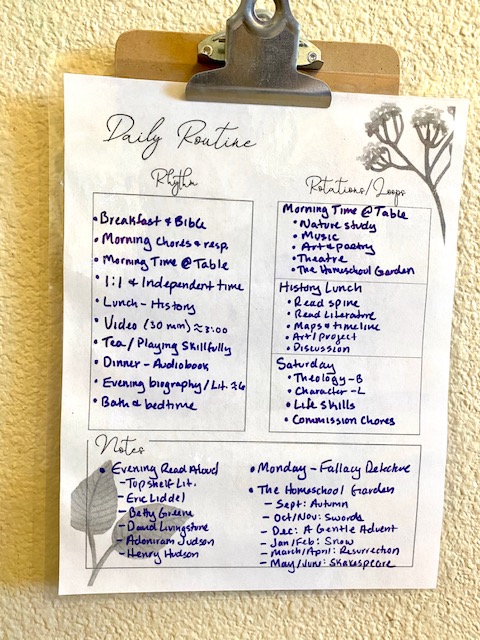 Daily Routine
Rhythm
• Breakfast & Bible
• Morning Chores & resp.
• Morning Time @ Table
• 1:1 & Independent time
• Lunch - History
• Video (30 min) ≈ 3:00
• Tea / Playing Skillfully
• Dinner - Audiobook
• Evening biography / Lit. ≈6
• Bath & bedtime
Rotations/Loops
Morning Time @ Table
• Nature study
• Music
• Art & poetry
• Theatre
• The Homeschool Garden
History Lunch
• Read spine
• Read Literature
• Maps & timeline
• Art/Project
• Discussion
Saturday
• Theology - B
• Character - L
• Life Skills
• Commission Chores
Notes
• Evening Read Aloud
- Top shelf Lit.
- Eric Liddel
- Betty Greene
- David Livingstone
- Adoniram Judson
- Henry Hudson
• Monday - Fallacy Detective
• The Homeschool Garden
- Sept: Autumn
- Oct/Nov: Swords
- Dec: A Gentle Advent
- Jan/Feb: Snow
- March/April: Resurrection
- May/June: Shakespeare